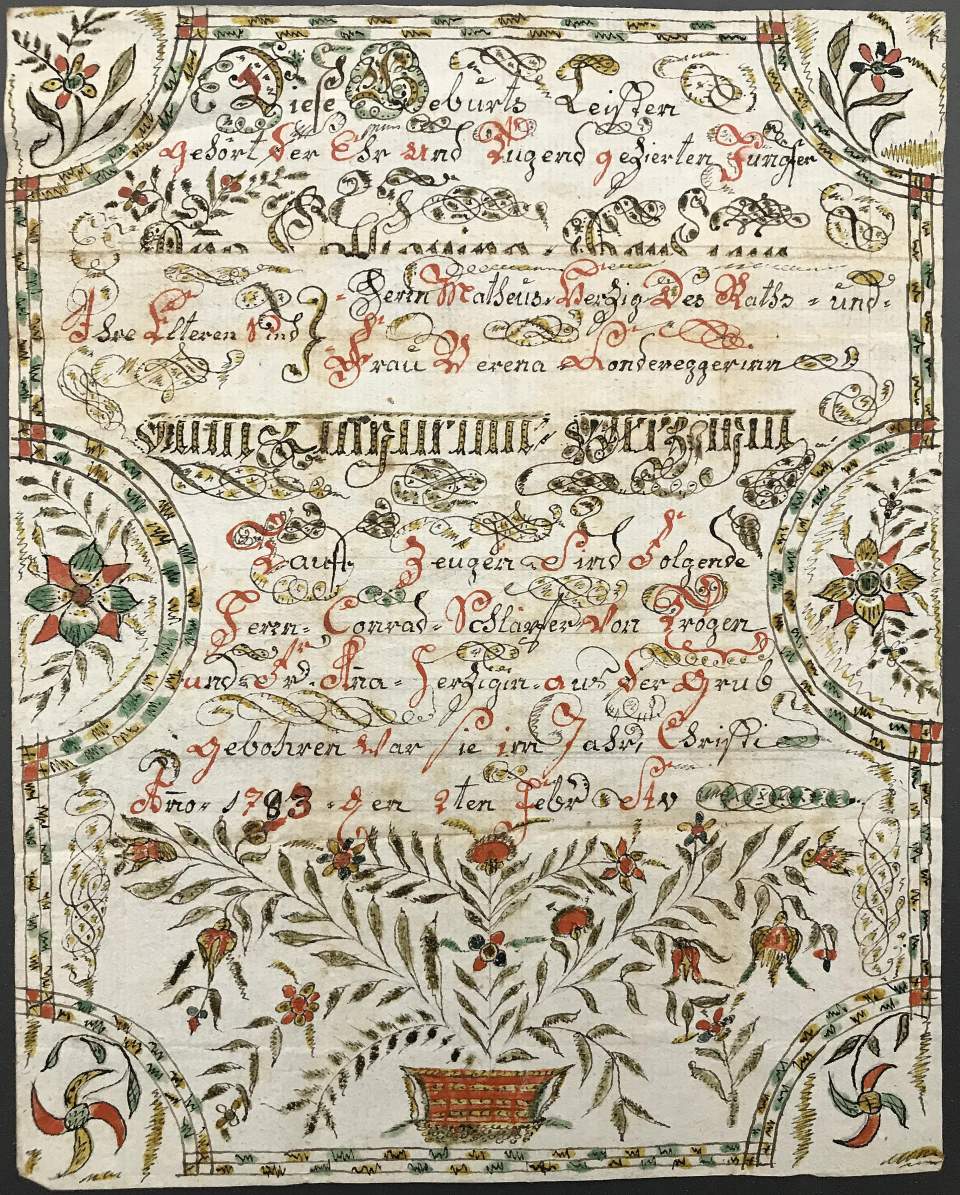 Diese Geburts Leisten
gehört der Ehr und Tugend gezierten Jungfer
Ihre Elteren Sind } Herrn Matheus Herzig Des Raths und
Frau Verena Sondereggerinn
Tauff Zeugen Sind Folgende
Herrn Conrad Schläpfer Von Trogen
und Fr. Ana Herzigin aus Der Grub
gebohren War sie im Jahr Christi
Ano 1783 den 2ten Febr Stv